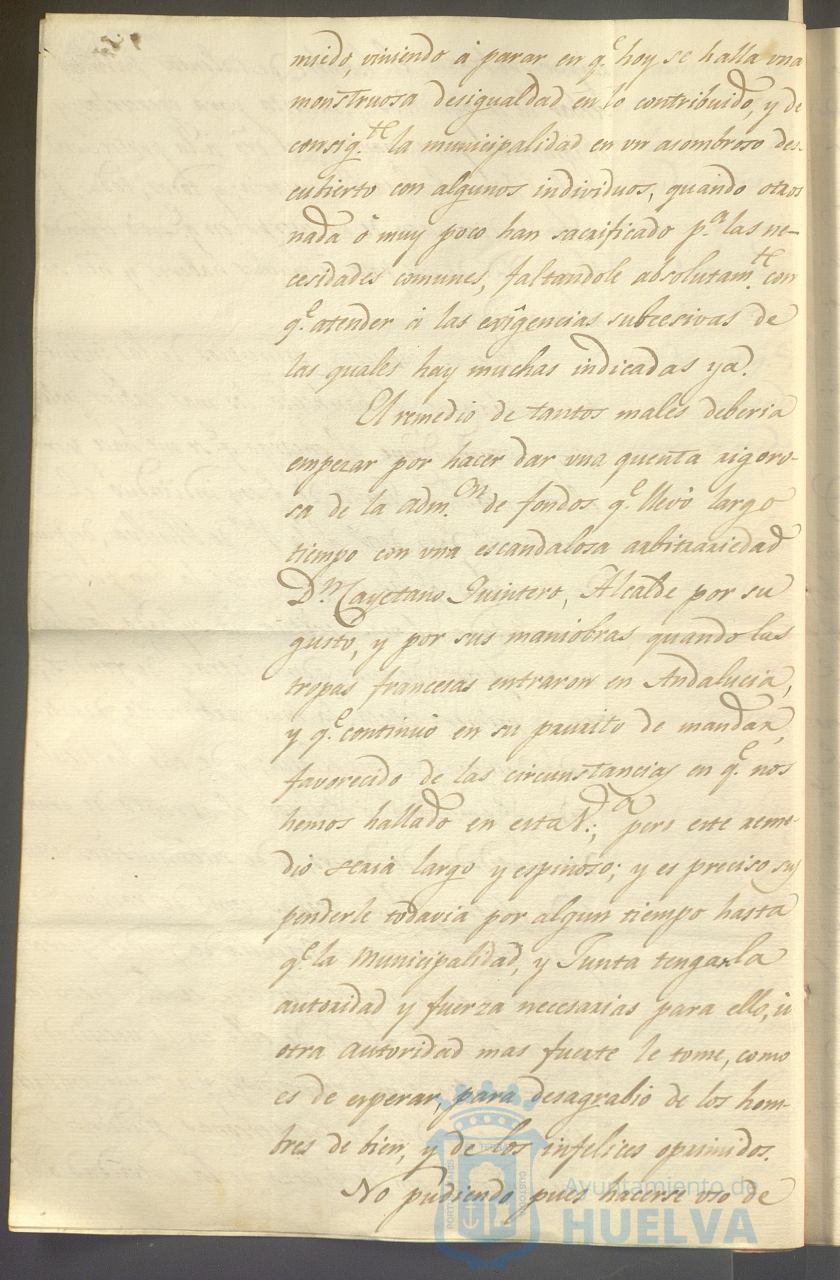 miedo, viniendo á parar en q.e hoy se halla una
monstruosa desigualdad en lo contribuido, y de
consig.te la municipalidad en un asombroso des-
cubierto con algunos individuos, quando otros
nada ó muy poco han sacrificado p.a las ne-
cesidades comunes, faltandole absolutam.te con
q.e atender á las exîgencias subcesivas de
las quales hay muchas indicadas ya.
El remedio de tantos males deberia
empezar por hacer dar una quenta rigoro-
sa de la adm.on de fondos q.e llevó largo
tiempo con una escandalosa arbitrariedad
D.n Cayetano Quintero, Alcalde por su
gusto, y por sus maniobras quando las
tropas francesas entraron en Andalucia,
y q.e continuó en su prurito de mandar,
favorecido de las circunstancias en q.e nos
hemos hallado en esta V.; pero este reme-
dio seria largo y espinoso; y es preciso sus
penderle todavia por algun tiempo hasta
q.e la Municipalidad, y Junta tenga la
autoridad y fuerza necesarias para ello, ú
otra autoridad mas fuerte le tome, como
es de esperar, para desagrabio de los hom-
bres de bien, y de los infelices oprimidos.
No pudiendo pues hacerse uso de
Ayuntamiento de
HUELVA